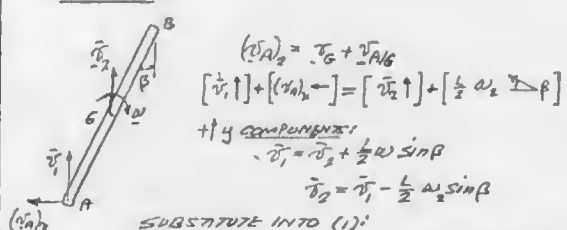 B
v̄₂
β
G
ω
v̄₁
A
(v_A)ₓ
(v_A)₂ = v_G + v_A/G
[v̄₁ ↑] + [(v_A)ₓ ←] = [v̄₂ ↑] + [L/2 ω₂ β]
+↑ y COMPONENTS:
v̄₁ = v̄₂ + L/2 ω sinβ
v̄₂ = v̄₁ - L/2 ω₂ sinβ
SUBSTITUTE INTO (1):